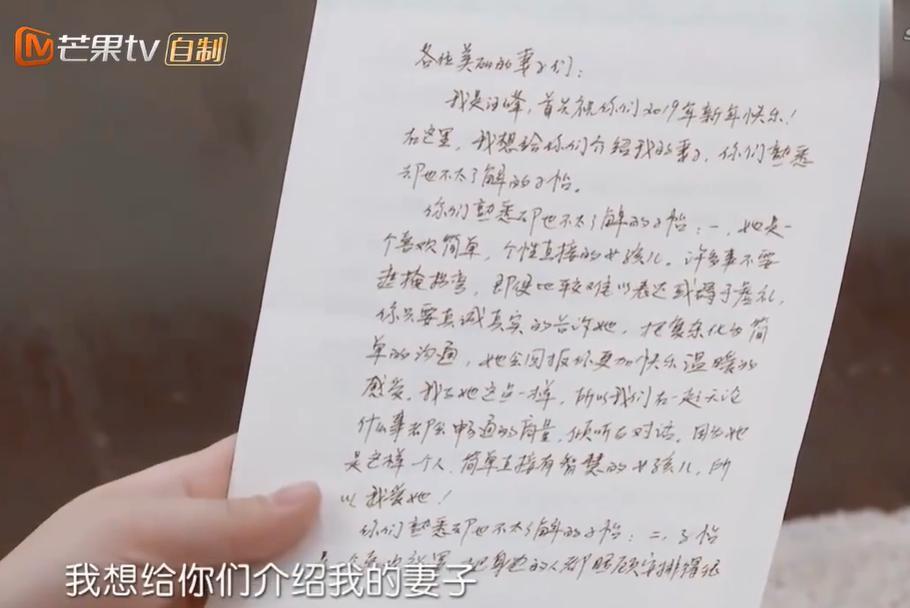 芒果tv 自制
各位美丽的妻子们：
我是汪峰，首先祝你们2019年新年快乐！
在这里，我想给你们介绍我的妻子，你们熟悉
却也不太了解的子怡。
你们熟悉却也不太了解的子怡：一，她是一
个喜欢简单，个性直接的女孩儿。许多事不要
遮掩拐弯，即便比较难以表达或碍于虚礼，
你只要真诚真实的告诉她，把复杂化为简
单的沟通，她会回报你更加快乐温暖的
感受。我和她这点一样，所以我们在一起无论
什么事都会畅通的商量，倾听和对话。因为她
是这样一个人，简单直接有智慧的女孩儿，所
以我爱她！
你们熟悉却也不太了解的子怡：二，子怡
个喜欢 把身边的人都照顾安排得很
我想给你们介绍我的妻子